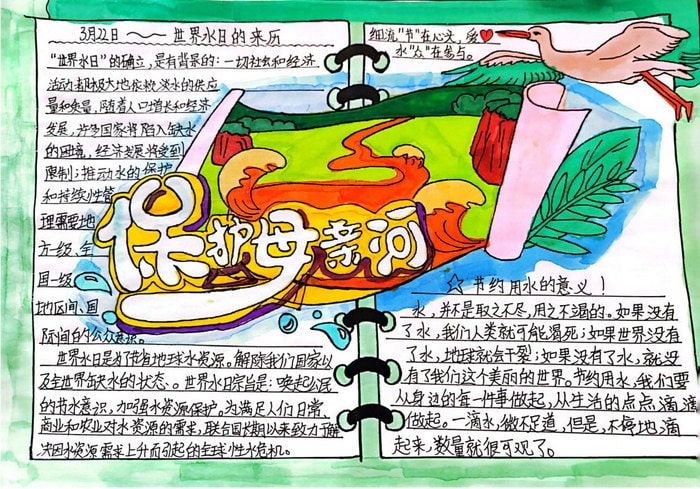 3月22日 —— 世界水日的来历
"世界水日"的确立,是有背景的:一切社会和经济
活动都极大地依赖淡水的供应
量和质量,随着人口增长和经济
发展,许多国家将陷入缺水
的困境,经济发展将受到
限制;推动水的保护
和持续性管
理需要地
方一级、全
国一级、
地区间、国
际间的公众意识。
世界水日是为了唤有地球水资源。解除我们国家以
及全世界缺水的状态、。世界水日宗旨是:唤起公民
的节水意识,加强水资源保护。为满足人们日常、
商业和农业对水资源的需求,联合国长期以来致力于解
决因水资源需求上升而引起的全球性水危机。
保护母亲河
细流"节"在心头,爱
水"众"在参与。
☆节约用水的意义!
水,并不是取之不尽,用之不渴的。如果没有
了水,我们人类就可能渴死;如果世界没有
了水,地球就会干裂;如果没有了水,就没
有了我们这个美丽的世界。节约用水,我们要
从身边的每一件事做起,从生活的点点滴滴
做起。一滴水,微不足道,但是,不停地滴
起来,数量就很可观了。